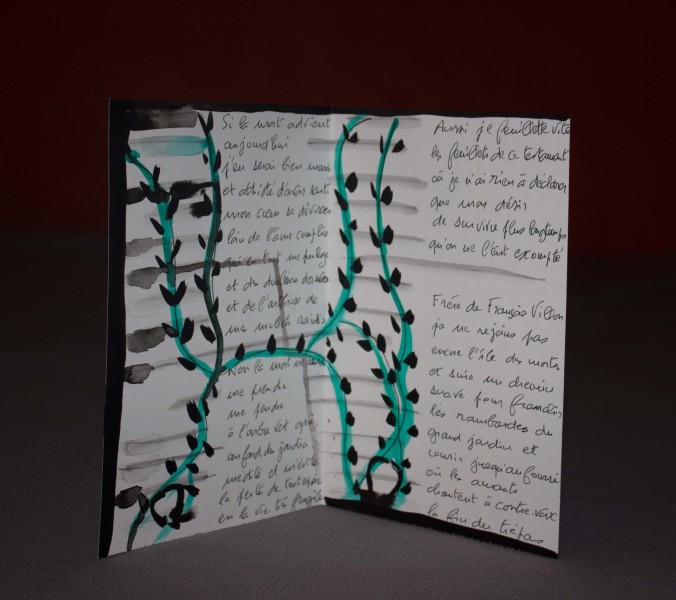 Si la mort advient
aujourd'hui
j'en serai bien marri
et attristé d'avoir senti
mon cœur se diviser
loin de l'âme complice
qui en tout me protège
et du du
et de l'arthrose de
mes mollets raidis
Non la mort ne
me prendra
me pendra
à l'arbre vert qui
au fond du jardin
inédite et
la perte de tout espoir
en la vie très fragile
Aussi je feuillette vite
les feuillets de ce testament
où je n'ai rien à déclarer
que mon désir
de survivre plus longtemps
qu'on ne l'ait escompté
Frère de François Villon
je ne rejoins pas
encore l'île des morts
et suis un chevrier
suave pour franchir
les rambardes du
grand jardin et
courir jusqu'au fourré
où les amants
chantent à contre-voix
la fin du trépas